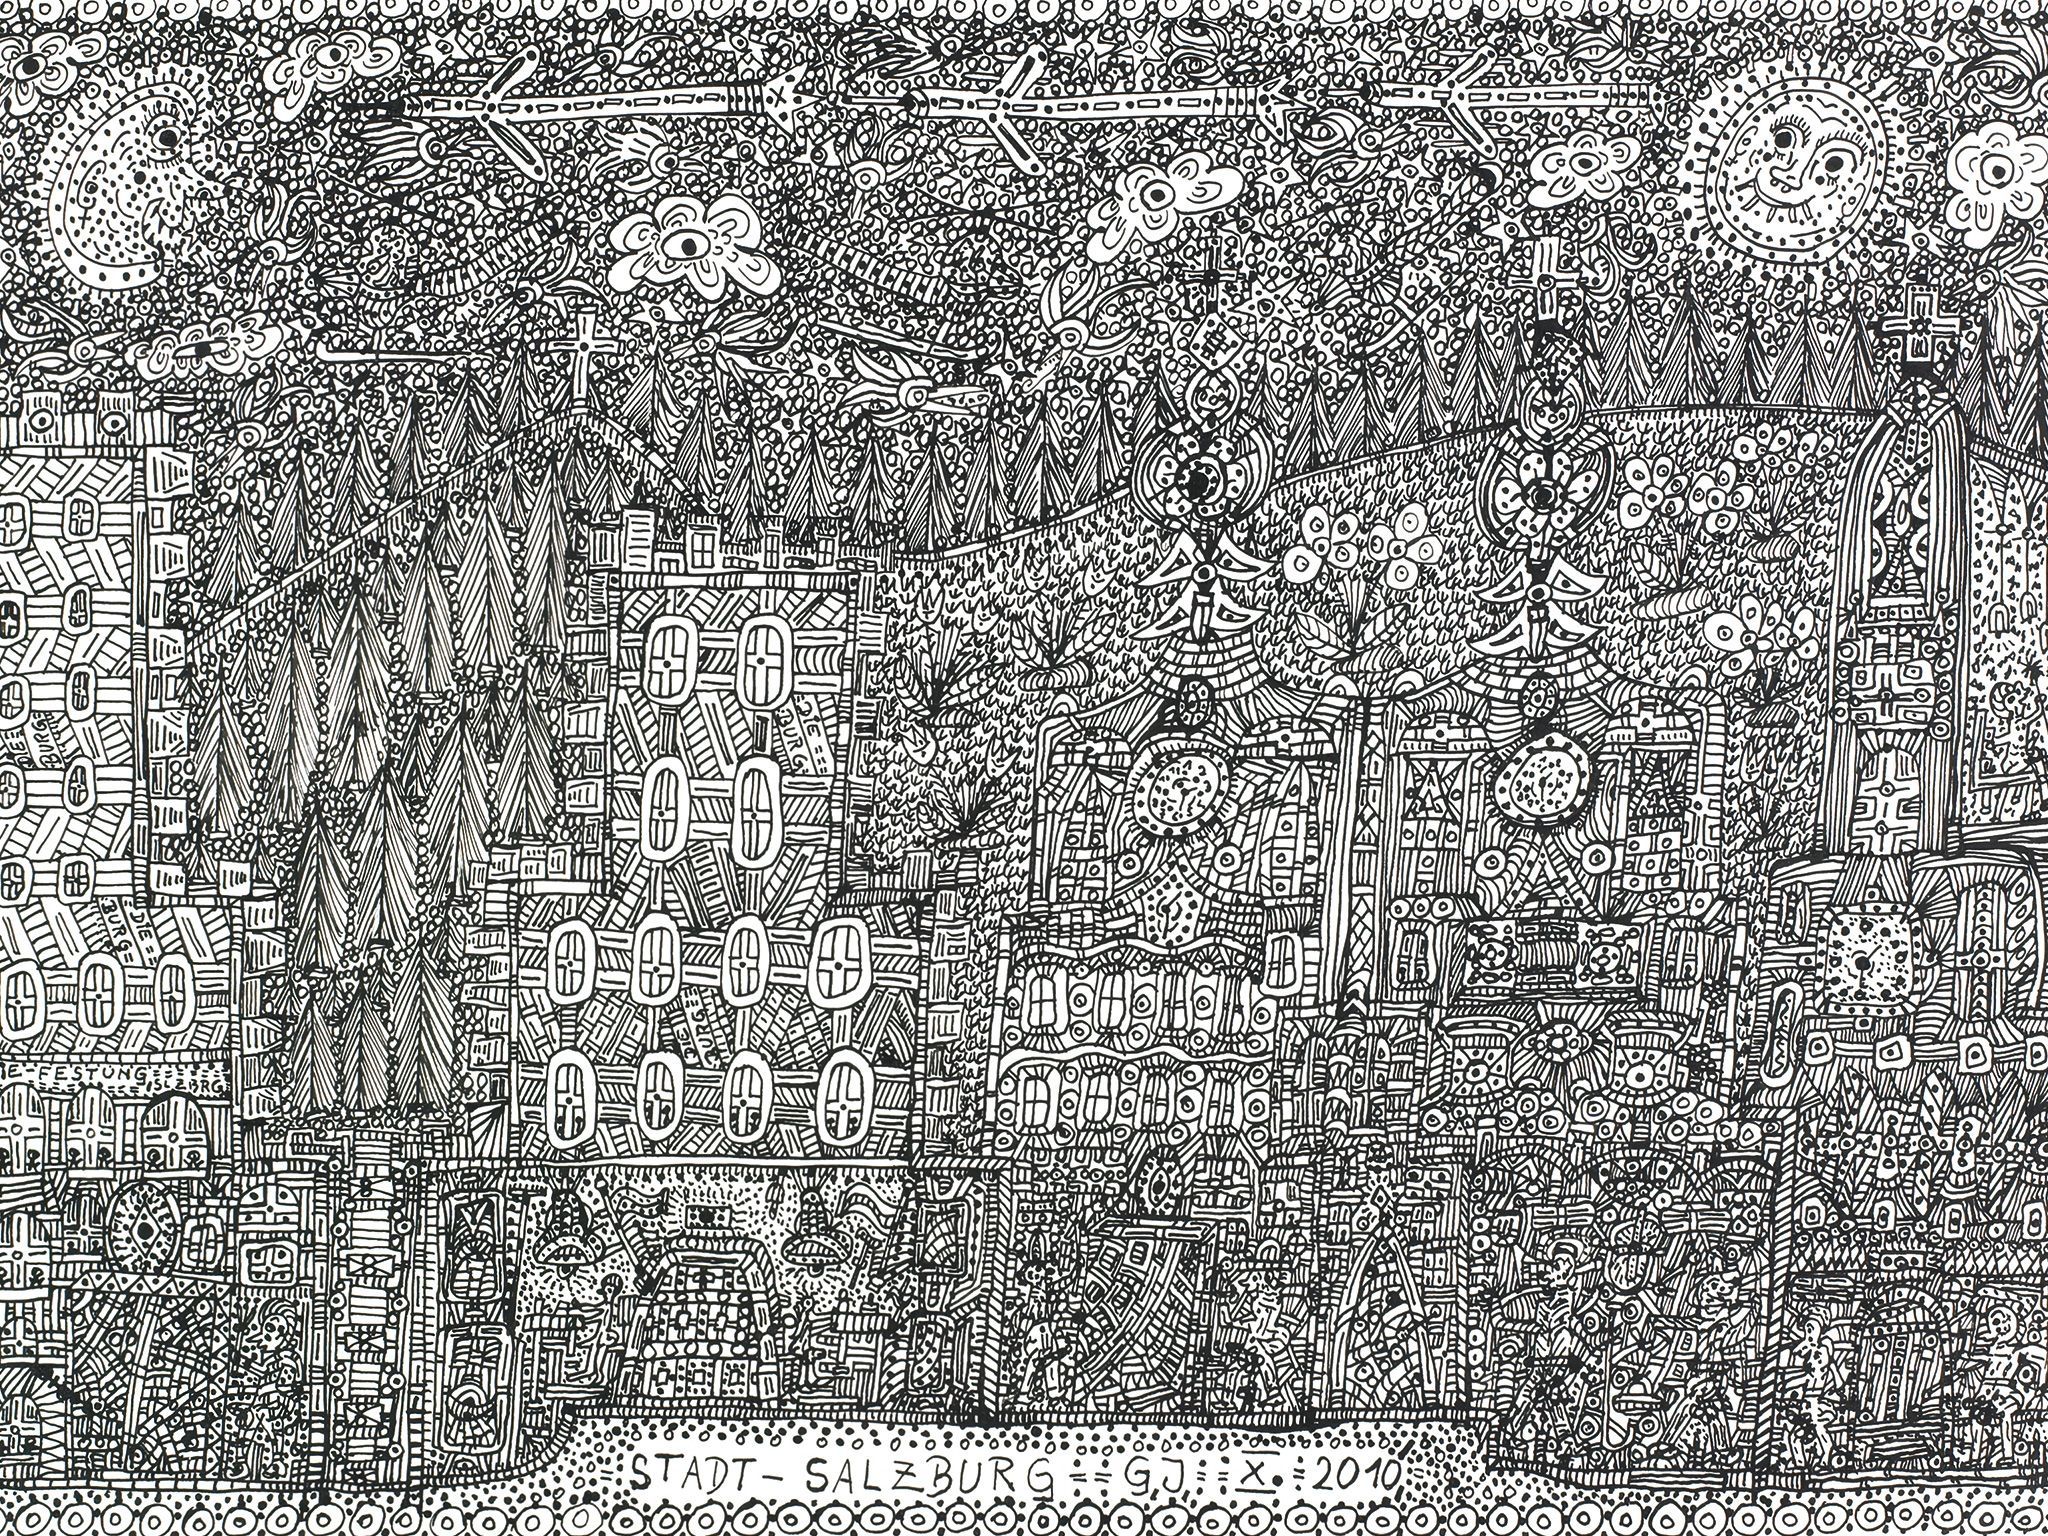 DIE
BURG
DIE =
BURG=
DIE =
BURG =
DIE
BURG
E FESTUNG
SLZBRG
= STADT - SALZBURG == G.J == X. = 2010 =